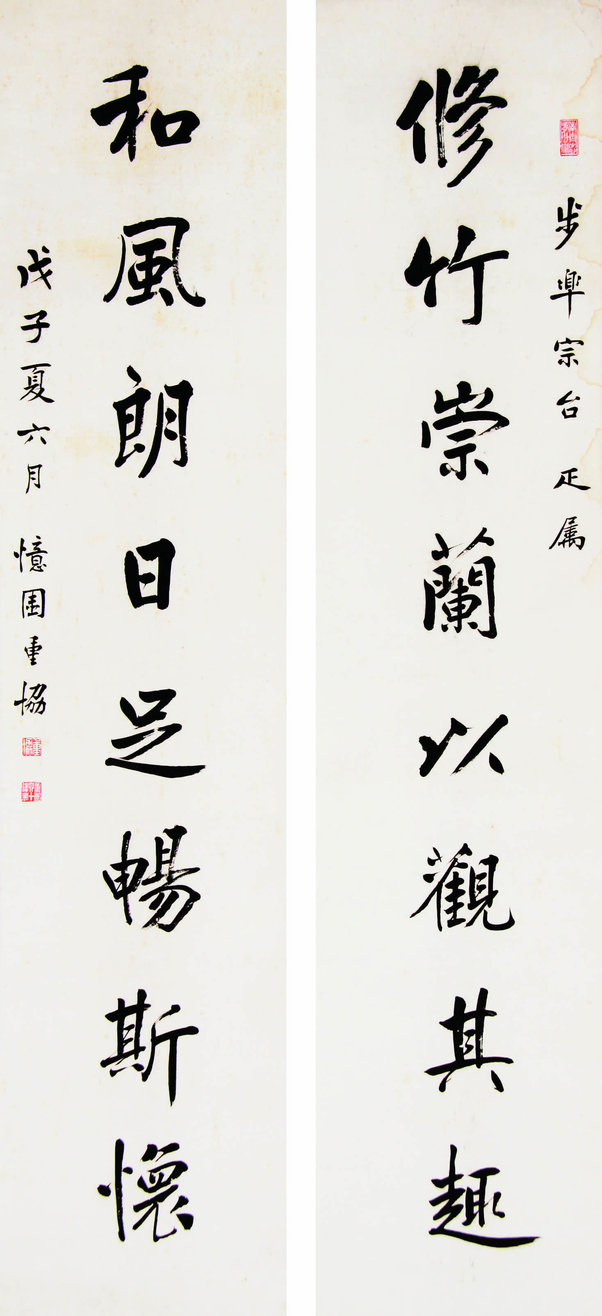 步皋宗台 疋属
修竹崇蘭以觀其趣
和風朗日足暢斯懷
戊子夏六月 憶園重恊